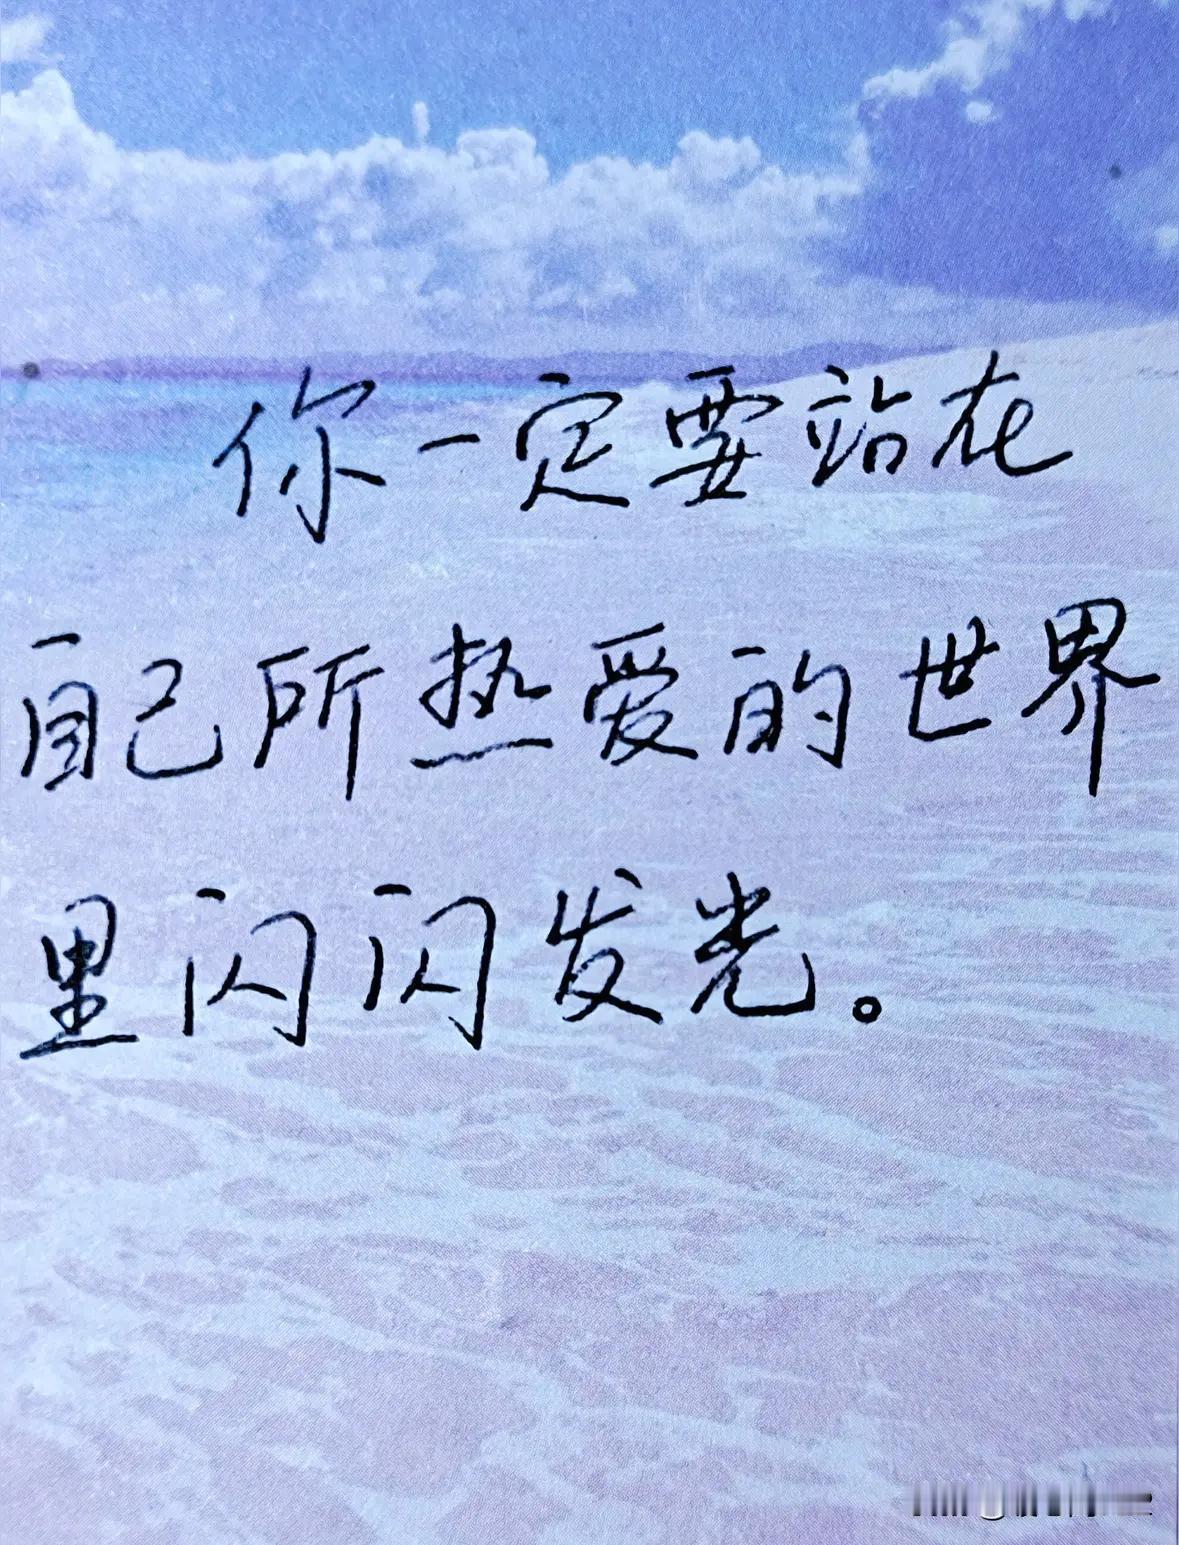 你一定要站在
自己所热爱的世界
里闪闪发光。